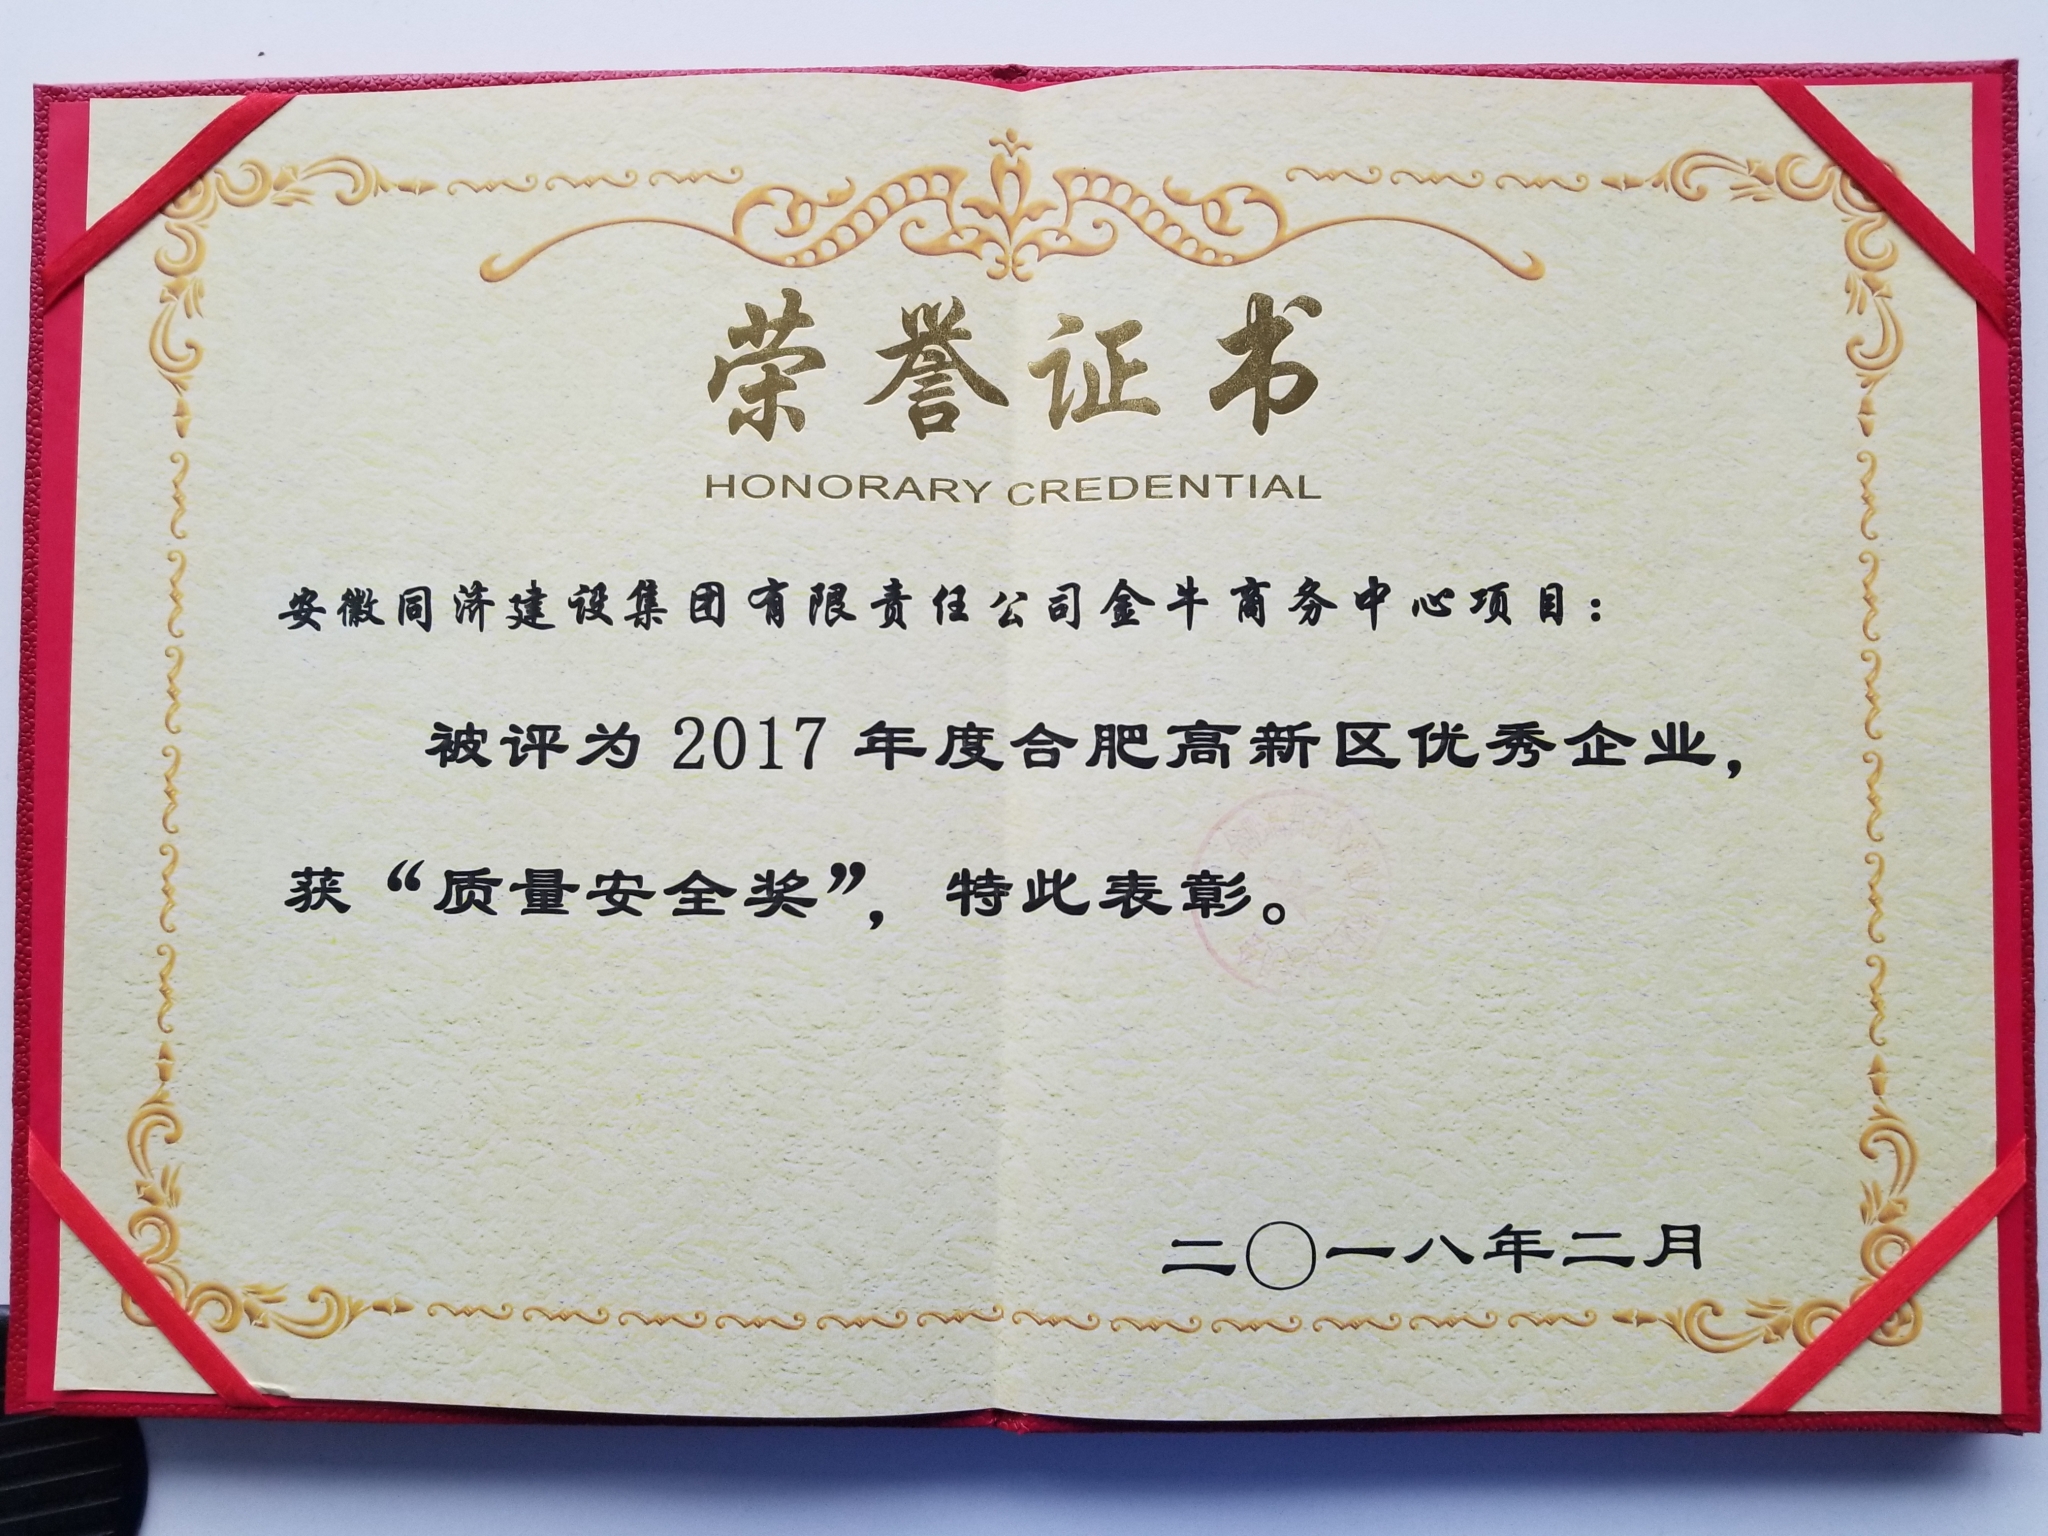 荣誉证书
HONORARY CREDENTIAL
安徽同济建设集团有限责任公司金牛商务中心项目：
被评为 2017 年度合肥高新区优秀企业，
获“质量安全奖”，特此表彰。
二〇一八年二月